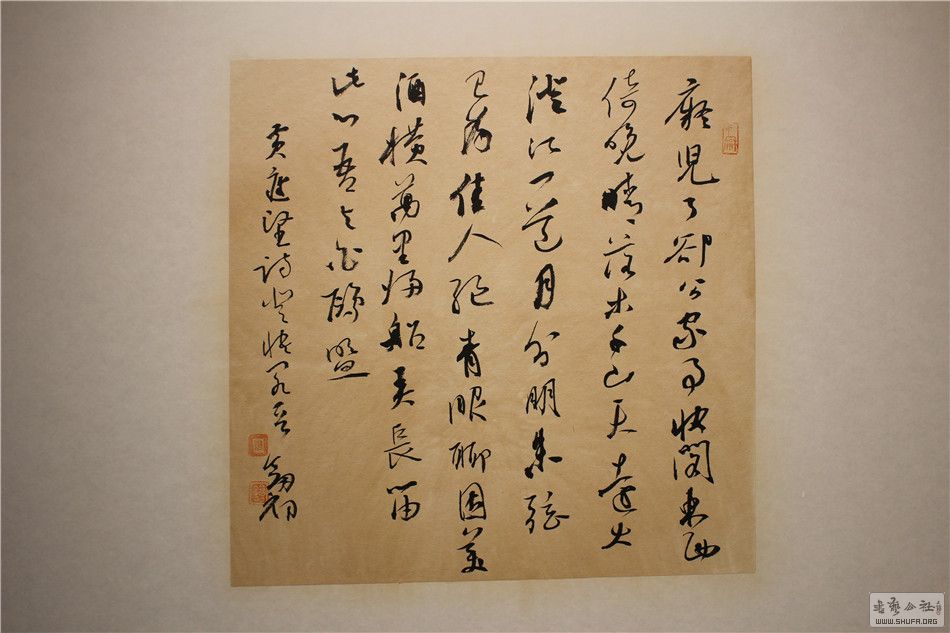 癡兒了卻公家事快閣東西
倚晚晴落木千山天遠大
澄江一道月分明朱弦
已為佳人絕青眼聊因美
酒橫萬里歸船弄長笛
此心吾與白鷗盟
黃庭堅詩登快閣
書藝公社
WWW.SHUFA.ORG